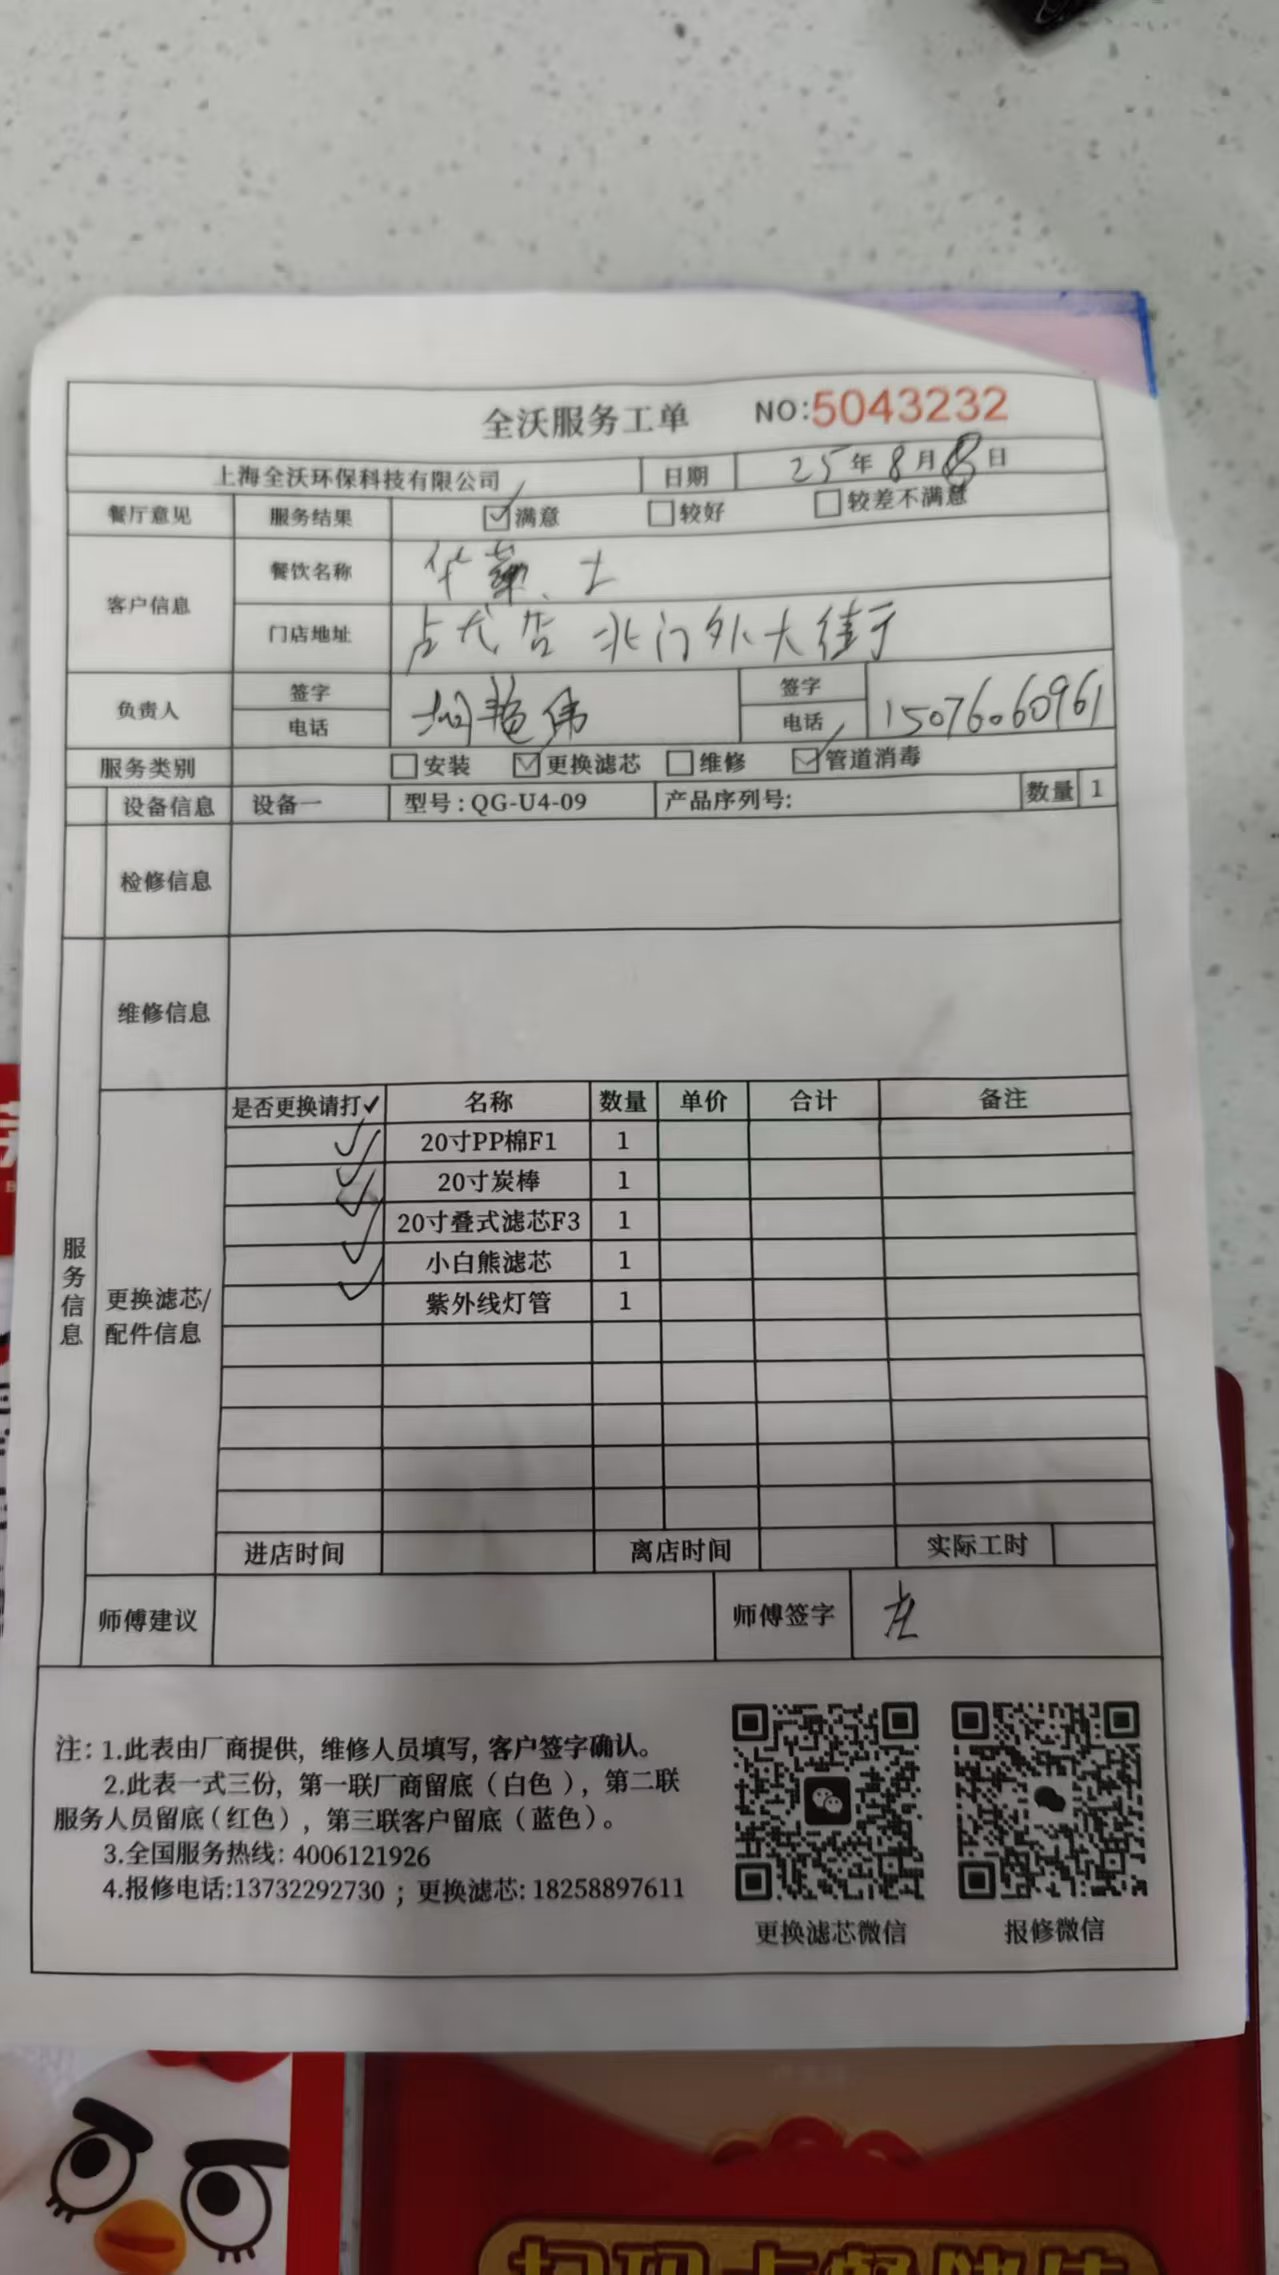 全沃服务工单 NO:5043232
上海全沃环保科技有限公司 日期 25年8月8日
餐厅意见 服务结果 ☑满意 □较好 □较差不满意
客户信息 餐饮名称 华莱士
门店地址 店 北门外大街
负责人 签字 艳伟 签字
电话 电话 15076060961
服务类别 □安装 ☑更换滤芯 □维修 ☑管道消毒
设备信息 设备一 型号:QG-U4-09 产品序列号: 数量 1
检修信息
维修信息
服务信息
更换滤芯/配件信息
是否更换请打✓ 名称 数量 单价 合计 备注
✓ 20寸PP棉F1 1
✓ 20寸炭棒 1
✓ 20寸叠式滤芯F3 1
✓ 小白熊滤芯 1
✓ 紫外线灯管 1
进店时间 离店时间 实际工时
师傅建议 师傅签字
注: 1.此表由厂商提供, 维修人员填写, 客户签字确认。
2.此表一式三份, 第一联厂商留底(白色), 第二联
服务人员留底(红色), 第三联客户留底(蓝色)。
3.全国服务热线: 4006121926
4.报修电话:13732292730 ; 更换滤芯: 18258897611
更换滤芯微信 报修微信